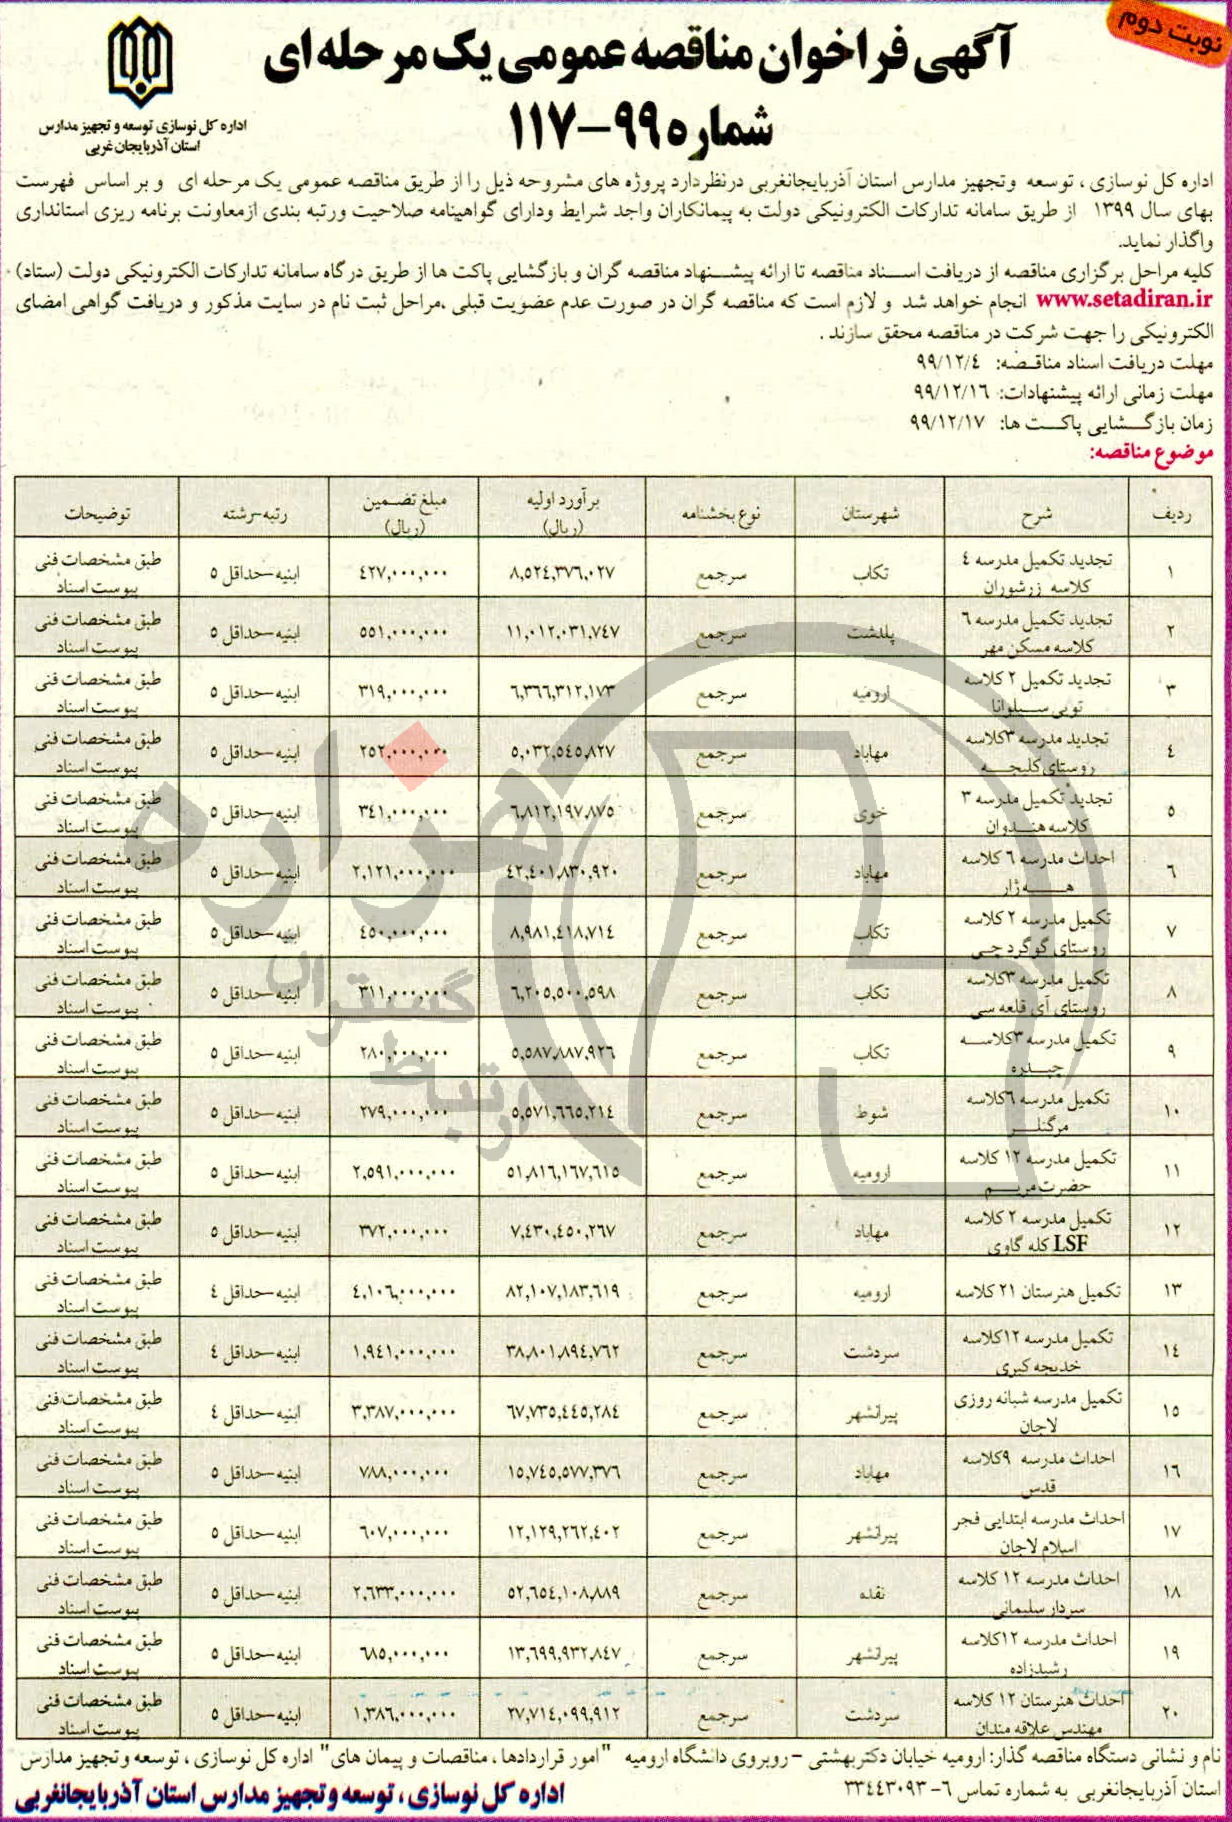 نوبت دوم
آگهی فراخوان مناقصه عمومی یک مرحله ای
شماره ۹۹-۱۱۷
اداره کل نوسازی توسعه و تجهیز مدارس
استان آذربایجان غربی
اداره کل نوسازی ، توسعه وتجهیز مدارس استان آذربایجانغربی درنظردارد پروژه های مشروحه ذیل را از طریق مناقصه عمومی یک مرحله ای و بر اساس فهرست
بهای سال ۱۳۹۹ از طریق سامانه تدارکات الکترونیکی دولت به پیمانکاران واجد شرایط ودارای گواهینامه صلاحیت ورتبه بندی ازمعاونت برنامه ریزی استانداری
واگذار نماید.
کلیه مراحل برگزاری مناقصه از دریافت اسناد مناقصه تا ارائه پیشنهاد مناقصه گران و بازگشایی پاکت ها از طریق درگاه سامانه تدارکات الکترونیکی دولت (ستاد)
www.setadiran.ir انجام خواهد شد و لازم است که مناقصه گران در صورت عدم عضویت قبلی ،مراحل ثبت نام در سایت مذکور و دریافت گواهی امضای
الکترونیکی را جهت شرکت در مناقصه محقق سازند .
مهلت دریافت اسناد مناقصه: ۹۹/۱۲/۴
مهلت زمانی ارائه پیشنهادات: ۹۹/۱۲/۱۶
زمان بازگشایی پاکت ها: ۹۹/۱۲/۱۷
موضوع مناقصه:
ردیف شرح شهرستان نوع بخشنامه برآورد اولیه (ریال) مبلغ تضمین (ریال) رتبه-رشته توضیحات
۱ تجدید تکمیل مدرسه ۴ کلاسه زرشوران تکاب سرجمع ۸,۵۲۴,۳۷۶,۰۲۷ ۴۲۷,۰۰۰,۰۰۰ ابنیه-حداقل ۵ طبق مشخصات فنی پیوست اسناد
۲ تجدید تکمیل مدرسه ۶ کلاسه مسکن مهر پلدشت سرجمع ۱۱,۰۱۲,۰۳۱,۷۴۷ ۵۵۱,۰۰۰,۰۰۰ ابنیه-حداقل ۵ طبق مشخصات فنی پیوست اسناد
۳ تجدید تکمیل ۲ کلاسه تویی سیلوانا ارومیه سرجمع ۶,۳۶۶,۳۱۲,۱۷۳ ۳۱۹,۰۰۰,۰۰۰ ابنیه-حداقل ۵ طبق مشخصات فنی پیوست اسناد
۴ تجدید مدرسه ۳کلاسه روستای کلیجه مهاباد سرجمع ۵,۰۳۲,۵۴۵,۸۲۷ ۲۵۲,۰۰۰,۰۰۰ ابنیه-حداقل ۵ طبق مشخصات فنی پیوست اسناد
۵ تجدید تکمیل مدرسه ۳ کلاسه هندوان خوی سرجمع ۶,۸۱۲,۱۹۷,۸۷۵ ۳۴۱,۰۰۰,۰۰۰ ابنیه-حداقل ۵ طبق مشخصات فنی پیوست اسناد
۶ احداث مدرسه ۶ کلاسه هه ژار مهاباد سرجمع ۴۲,۴۰۱,۸۳۰,۹۲۰ ۲,۱۲۱,۰۰۰,۰۰۰ ابنیه-حداقل ۵ طبق مشخصات فنی پیوست اسناد
۷ تکمیل مدرسه ۲ کلاسه روستای گوگردچی تکاب سرجمع ۸,۹۸۱,۴۱۸,۷۱۴ ۴۵۰,۰۰۰,۰۰۰ ابنیه-حداقل ۵ طبق مشخصات فنی پیوست اسناد
۸ تکمیل مدرسه ۳کلاسه روستای آی قلعه سی تکاب سرجمع ۶,۲۰۵,۵۰۰,۵۹۸ ۳۱۱,۰۰۰,۰۰۰ ابنیه-حداقل ۵ طبق مشخصات فنی پیوست اسناد
۹ تکمیل مدرسه ۳کلاسه چپدره تکاب سرجمع ۵,۵۸۷,۸۸۷,۹۲۶ ۲۸۰,۰۰۰,۰۰۰ ابنیه-حداقل ۵ طبق مشخصات فنی پیوست اسناد
۱۰ تکمیل مدرسه ۶کلاسه مرگنلر شوط سرجمع ۵,۵۷۱,۶۶۵,۲۱۴ ۲۷۹,۰۰۰,۰۰۰ ابنیه-حداقل ۵ طبق مشخصات فنی پیوست اسناد
۱۱ تکمیل مدرسه ۱۲ کلاسه حضرت مریم ارومیه سرجمع ۵۱,۸۱۶,۱۶۷,۶۱۵ ۲,۵۹۱,۰۰۰,۰۰۰ ابنیه-حداقل ۵ طبق مشخصات فنی پیوست اسناد
۱۲ تکمیل مدرسه ۲ کلاسه LSF کله گاوی مهاباد سرجمع ۷,۴۳۰,۴۵۰,۲۶۷ ۳۷۲,۰۰۰,۰۰۰ ابنیه-حداقل ۵ طبق مشخصات فنی پیوست اسناد
۱۳ تکمیل هنرستان ۲۱ کلاسه ارومیه سرجمع ۸۲,۱۰۷,۱۸۳,۶۱۹ ۴,۱۰۶,۰۰۰,۰۰۰ ابنیه-حداقل ۴ طبق مشخصات فنی پیوست اسناد
۱۴ تکمیل مدرسه ۱۲کلاسه خدیجه کبری سردشت سرجمع ۳۸,۸۰۱,۸۹۴,۷۶۲ ۱,۹۴۱,۰۰۰,۰۰۰ ابنیه-حداقل ۴ طبق مشخصات فنی پیوست اسناد
۱۵ تکمیل مدرسه شبانه روزی لاجان پیرانشهر سرجمع ۶۷,۷۳۵,۴۴۵,۲۸۴ ۳,۳۸۷,۰۰۰,۰۰۰ ابنیه-حداقل ۴ طبق مشخصات فنی پیوست اسناد
۱۶ احداث مدرسه ۹کلاسه قدس مهاباد سرجمع ۱۵,۷۴۵,۵۷۷,۳۷۶ ۷۸۸,۰۰۰,۰۰۰ ابنیه-حداقل ۵ طبق مشخصات فنی پیوست اسناد
۱۷ احداث مدرسه ابتدایی فجر اسلام لاجان پیرانشهر سرجمع ۱۲,۱۲۹,۲۶۲,۴۰۲ ۶۰۷,۰۰۰,۰۰۰ ابنیه-حداقل ۵ طبق مشخصات فنی پیوست اسناد
۱۸ احداث مدرسه ۱۲ کلاسه سردار سلیمانی نقده سرجمع ۵۲,۶۵۴,۱۰۸,۸۸۹ ۲,۶۳۳,۰۰۰,۰۰۰ ابنیه-حداقل ۵ طبق مشخصات فنی پیوست اسناد
۱۹ احداث مدرسه ۱۲کلاسه رشیدزاده پیرانشهر سرجمع ۱۳,۶۹۹,۹۳۲,۸۴۷ ۶۸۵,۰۰۰,۰۰۰ ابنیه-حداقل ۵ طبق مشخصات فنی پیوست اسناد
۲۰ احداث هنرستان ۱۲ کلاسه مهندس علاقه مندان سردشت سرجمع ۲۷,۷۱۴,۰۹۹,۹۱۲ ۱,۳۸۶,۰۰۰,۰۰۰ ابنیه-حداقل ۵ طبق مشخصات فنی پیوست اسناد
نام و نشانی دستگاه مناقصه گذار: ارومیه خیابان دکتربهشتی - روبروی دانشگاه ارومیه "امور قراردادها ، مناقصات و پیمان های" اداره کل نوسازی ، توسعه وتجهیز مدارس
استان آذربایجانغربی به شماره تماس ۶- ۳۳۴۴۳۰۹۳
اداره کل نوسازی ، توسعه وتجهیز مدارس استان آذربایجانغربی
هزاره
گستران
ارتباط